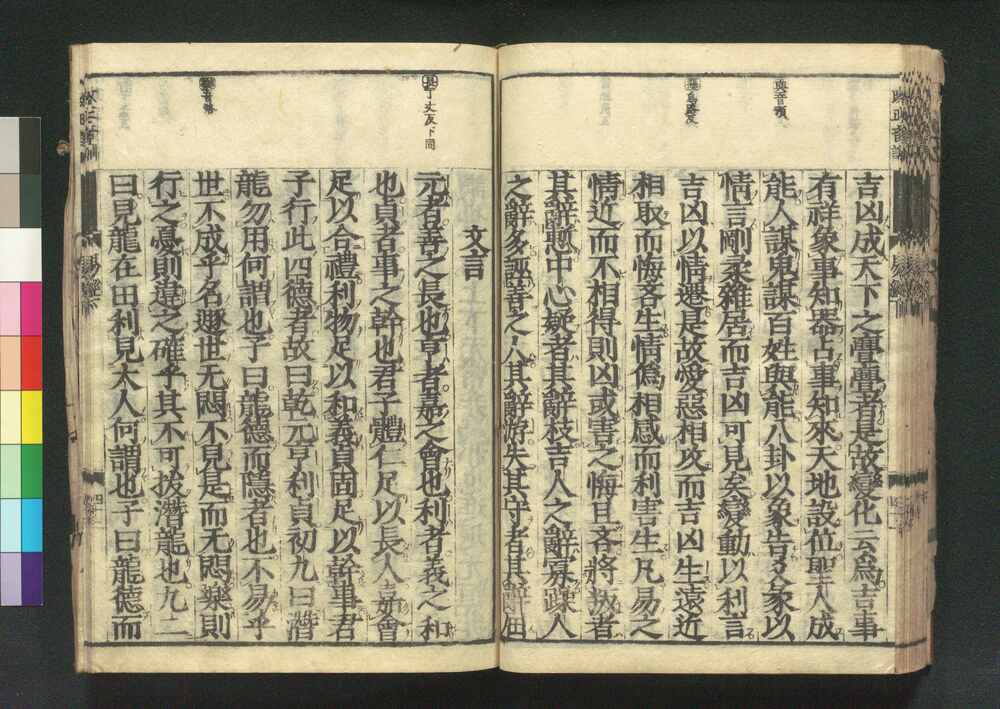 與音預
惡烏路反
吉凶成天下之亹亹者是故變化云爲吉事
有祥象事知器占事知來天地設位聖人成
能人謀鬼謀百姓與能八卦以象告爻彖以
情言剛柔雜居而吉凶可見矣變動以利言
吉凶以情遷是故愛惡相攻而吉凶生遠近
相取而悔吝生情僞相感而利害生凡易之
情近而不相得則凶或害之悔且吝將叛者
其辭慙中心疑者其辭枝吉人之辭寡躁人
之辭多誣善之人其辭游失其守者其辭屈
長丁丈反下同
文言
元者善之長也亨者嘉之會也利者義之和
也貞者事之幹也君子體仁足以長人嘉會
足以合禮利物足以和義貞固足以幹事君
子行此四德者故曰乾元亨利貞初九曰潛
龍勿用何謂也子曰龍德而隱者也不易乎
世不成乎名遯世无悶不見是而无悶樂則
行之憂則違之確乎其不可拔潛龍也九二
曰見龍在田利見大人何謂也子曰龍德而
易經